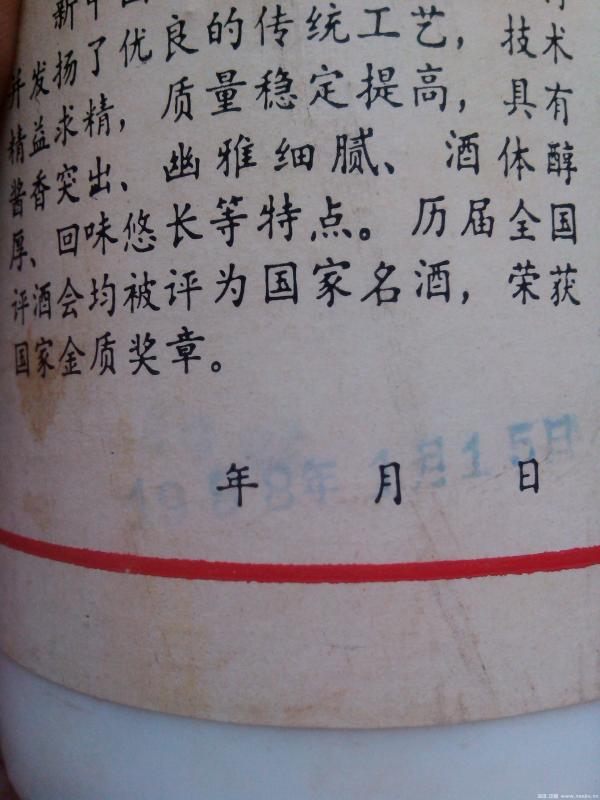 新中国
并发扬了优良的传统工艺，技术
精益求精，质量稳定提高，具有
酱香突出、幽雅细腻、酒体醇
厚、回味悠长等特点。历届全国
评酒会均被评为国家名酒，荣获
国家金质奖章。
年 月 日
1988年1月15日